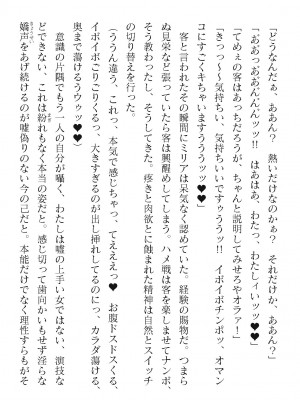 「どうなんだぁ、ああん？　熱いだけなのかぁ？　それだけか、ああん？
「ああっああんんんッ!!　はあはあ、わたっ、わたしィいッッ♥♥」
「てめぇの客はあっちだろうが、ちゃんと説明してみせろやオラァ！」
「きっっ～～気持ちい、気持ちいいですゥううッ!!　イボイボチンポッ、オマン
コにすごくキちゃいますうううッッ♥♥」
　客と言われたその瞬間にミリアは呆気なく認めていた。経験の賜物だ。つまら
ぬ見栄など張っていたら客は興醒めしてしまう。ハメ戦は客を楽しませてナンボ、
そう教わったし、そうしてきた。疼きと肉欲とに蝕まれた精神は自然とスイッチ
の切り替えを行った。
「ううん違う、これっ、本気で感じちゃっ、てええっ♥　お腹ドスドスくる、
イボイボごりごりくるっ、大きすぎるのが出し挿れしてるのにっっ、カラダ蕩ける、
奥まで蕩けるうウゥッ♥♥」
　意識の片隅でもう一人の自分が囁く、わたしは嘘の上手い女ではない、演技な
どできない、これは紛れもなく本当の姿だと。感じ切って歯向かいもせず淫らな
嬌声をあげ続けるのが嘘偽りのない今の己だと。本能だけでなく理性すらもがそ